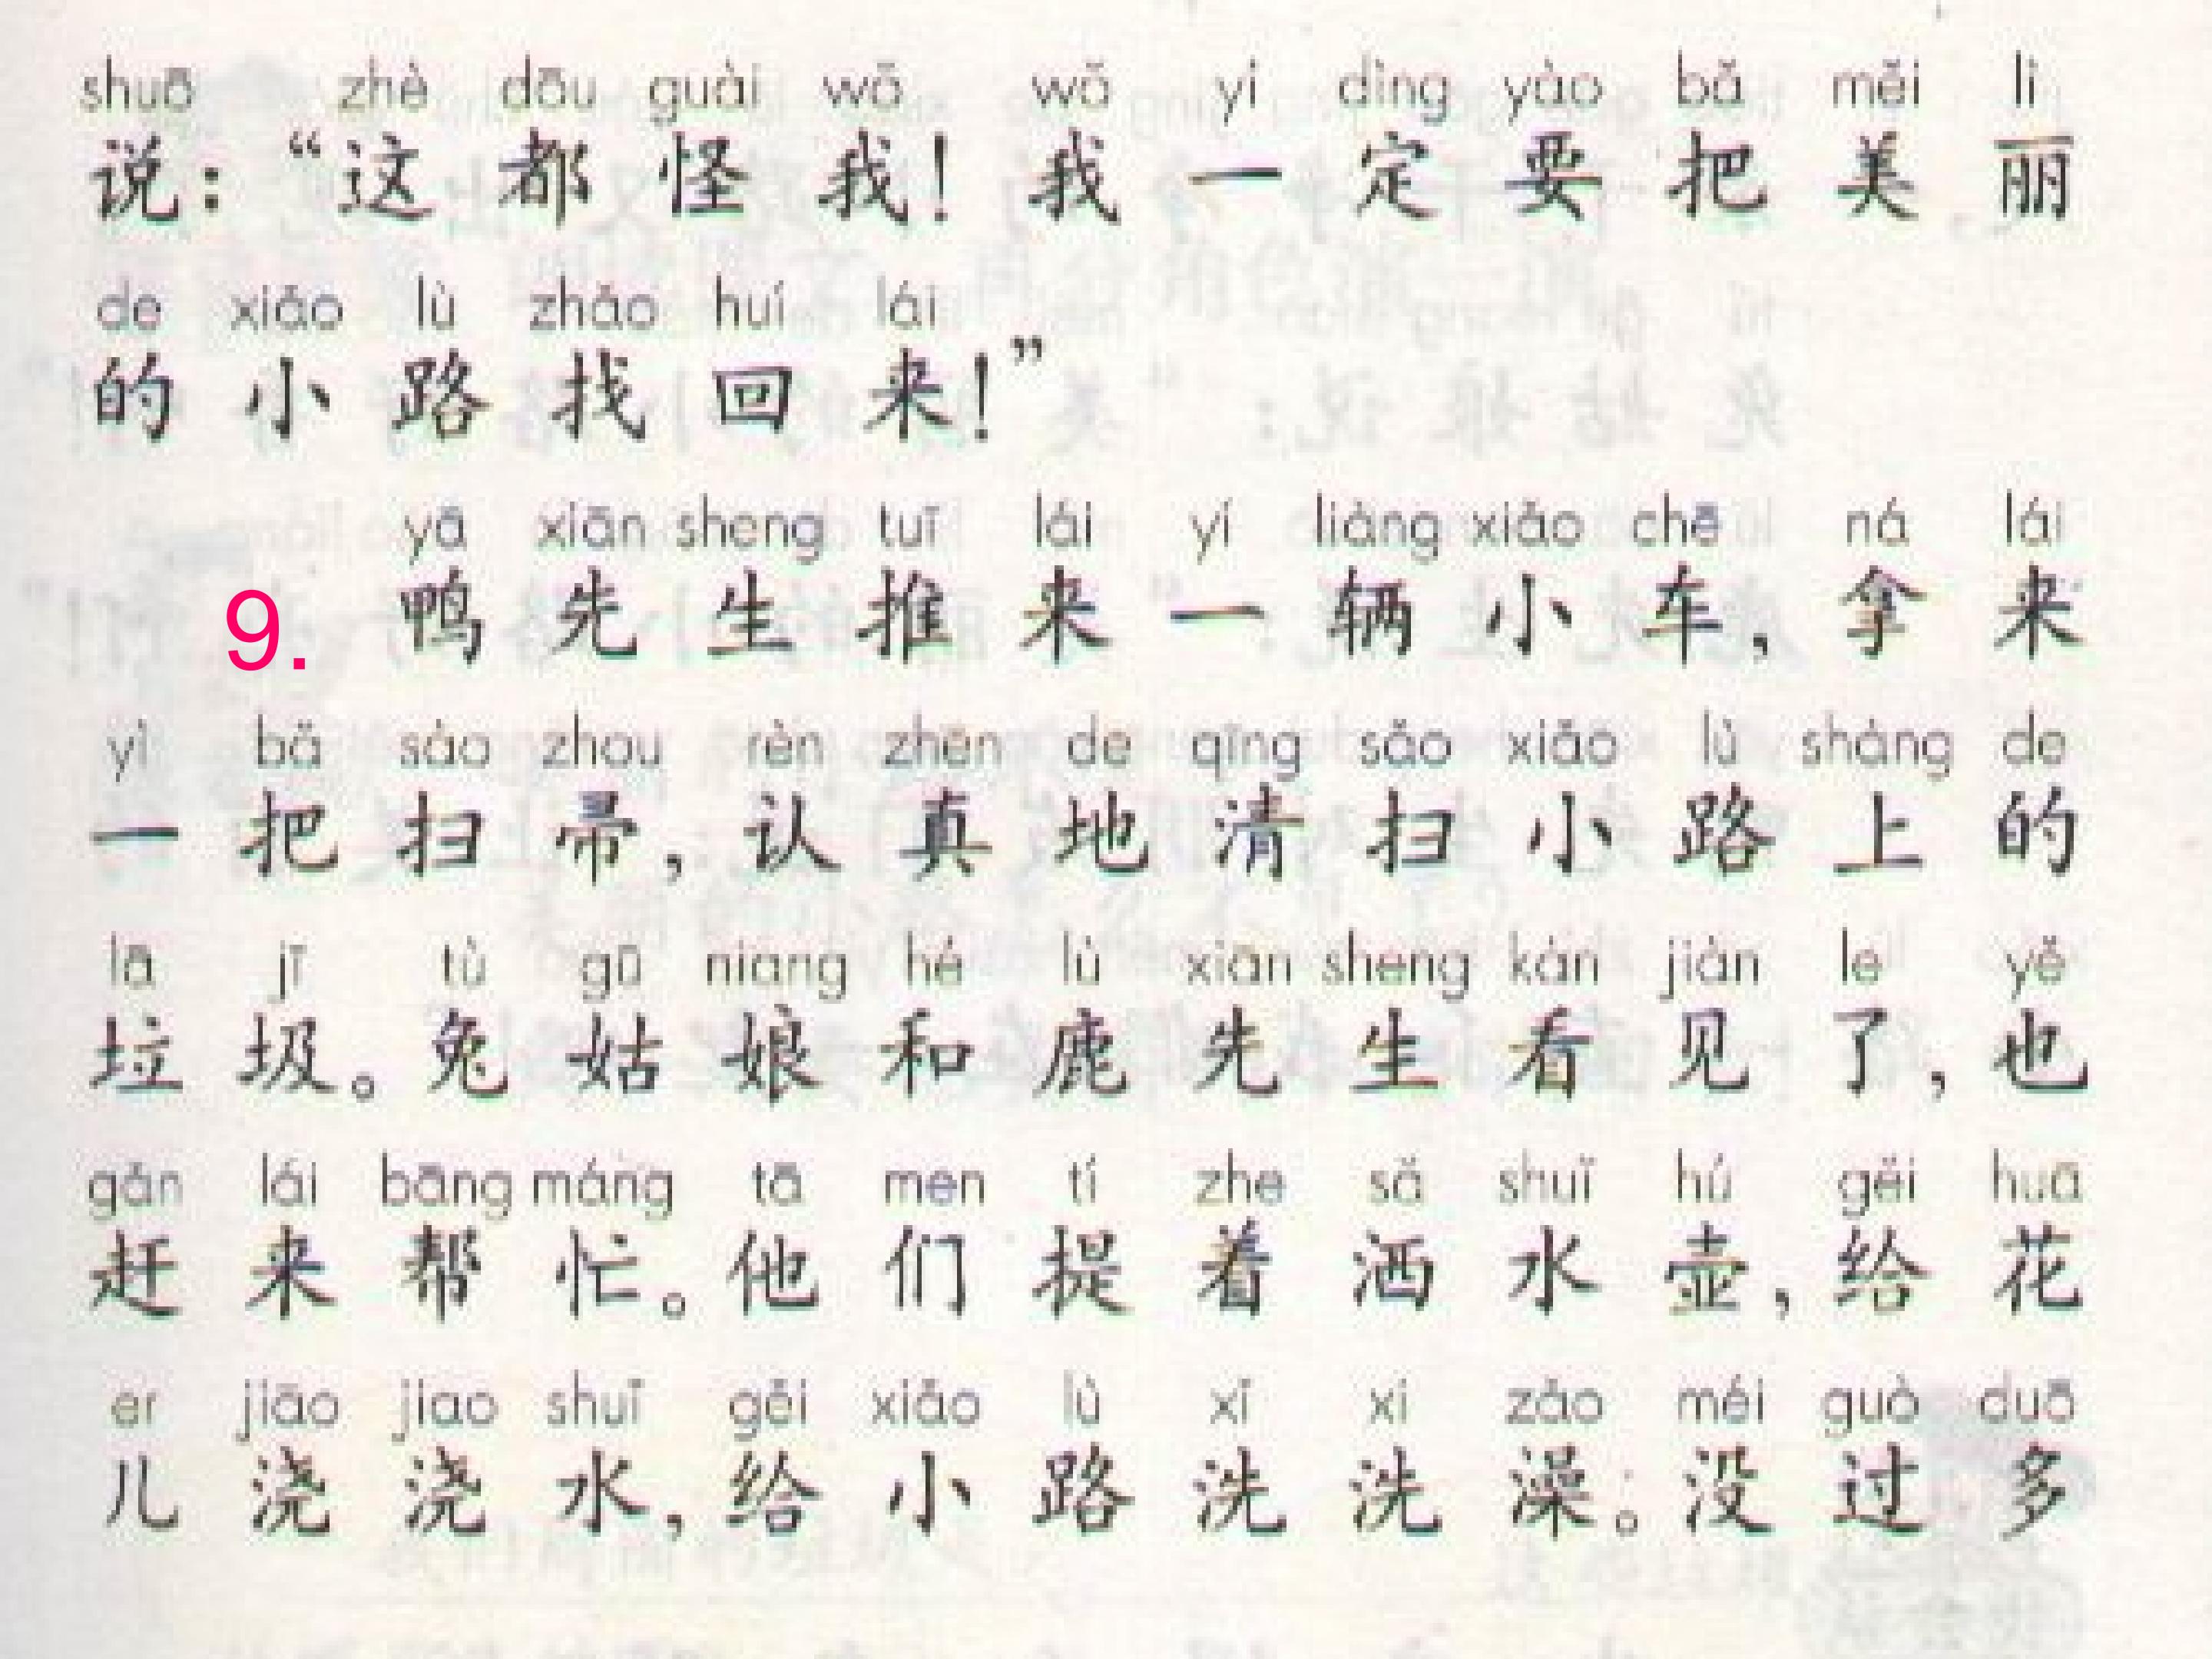 shuō zhè dōu guài wǒ wǒ yí dìng yào bǎ měi lì
说：“这都怪我！我一定要把美丽
de xiǎo lù zhǎo huí lái
的小路找回来！”
yā xiān sheng tuī lái yí liàng xiǎo chē ná lái
9. 鸭先生推来一辆小车，拿来
yì bǎ sào zhou rèn zhēn de qīng sǎo xiǎo lù shàng de
一把扫帚，认真地清扫小路上的
lā jī tù gū niang hé lù xiān sheng kàn jiàn le yě
垃圾。兔姑娘和鹿先生看见了，也
gǎn lái bāng máng tā men tí zhe sǎ shuǐ hú gěi huā
赶来帮忙。他们提着洒水壶，给花
er jiāo jiao shuǐ gěi xiǎo lù xǐ xi zǎo méi guò duō
儿浇浇水，给小路洗洗澡。没过多